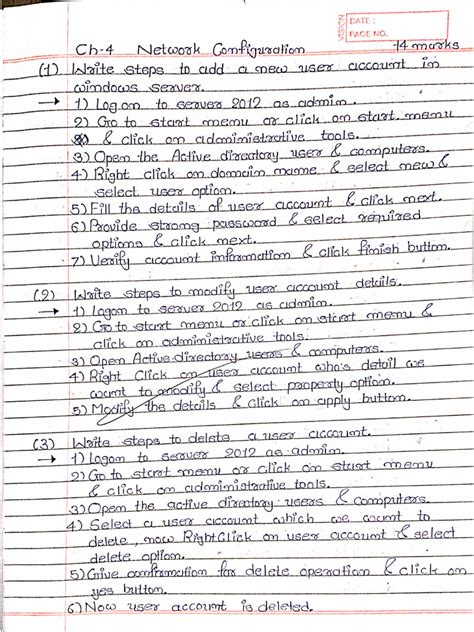 VISION
DATE :
PAGE NO.
Ch-4 Network Configuration 14 marks
(1) Write steps to add a new user account in
windows server.
→ 1) Logon to server 2012 as admin.
2) Go to start menu or click on start menu
& click on administrative tools.
3) Open the Active directory user & computers.
4) Right click on domain name & select new &
select user option.
5) Fill the details of user account & click next.
6) Provide strong password & select required
options & click next.
7) Verify account information & click finish button.
(2) Write steps to modify user account details.
→ 1) Logon to server 2012 as admin.
2) Go to start menu or click on start menu &
click on administrative tools.
3) Open Active directory users & computers.
4) Right Click on user account who's detail we
want to modify & select property option.
5) Modify the details & click on apply button.
(3) Write steps to delete a user account.
→ 1) Logon to server 2012 as admin.
2) Go to start menu or click on start menu
& click on administrative tools.
3) Open the active directory users & computers.
4) Select a user account which we want to
delete, now Right Click on user account & select
delete option.
5) Give confirmation for delete operation & click on
yes button.
6) Now user account is deleted.